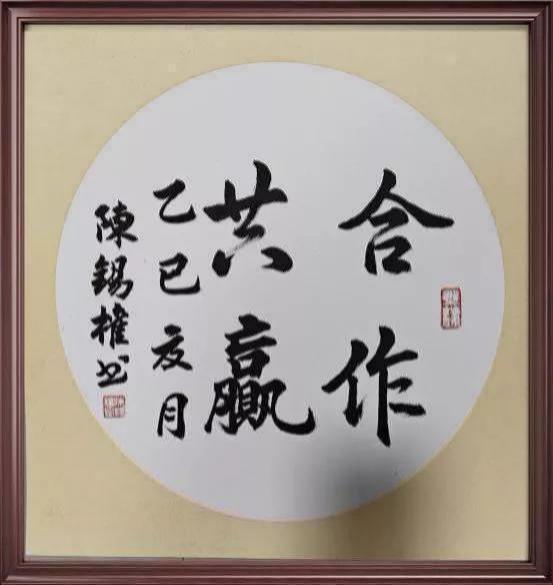 合作
共赢
乙巳夏月
陳錫權书